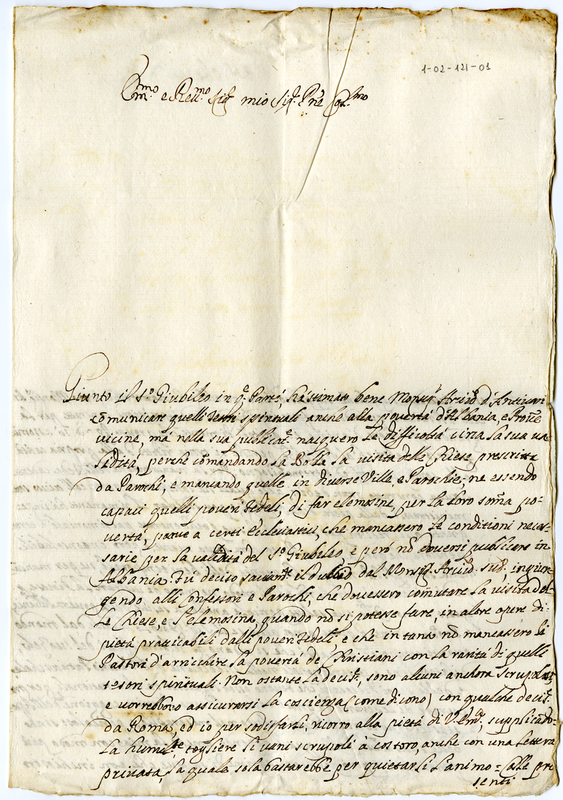 1-02-121-01
Em.mo e Rev.mo Sig.r mio Sig.r P.ne Col.mo
Giunto il S.o Giubileo in q.e Parti ha stimato bene Monsig.r Arciv.o d'Antivari
comunicare quelli tesori spirituali anche alla povertà d'Albania, e Prov.e
vicine, mà nella sua publicat.e nacquero le difficoltà circa la sua va
lidità, perche comandando la Bolla la visita delle Chiese prescritte
da Parochi, e mancando quelle in diverse Ville, e Parochie; ne essendo
capaci quelli poveri fedeli, di far elemosine per la loro somma po-
vertà, parve a certi Ecclesiastici, che mancassero le conditioni neces-
sarie per la validità del S.o Giubileo e però nõ doversi publicare in
Albania. Fù deciso il dubbio dal Monsig.r Arciv.o sud.o, ingiun
gendo alli Confessori, e Parochi, che dovessero comutare la visita del
le Chiese, e l'elemosina, quando nõ si potesse fare, in altre opere di
pietà pratticabili dalli poveri fedeli, e che in tanto nõ mancassero li
Pastori d'arrichire la povertà de Christiani con la rarità di quelli
tesori spirituali. Non ostante la decis.e, sono alcuni anchora scrupolosi
e vorrebbono assicurarsi la coscienza (come dicono) con qualche decis.e
da Roma, ed io per sodisfarli, ricorro alla pietà di V. Em.za, supplicãdo
la humilm.te togliere li vani scrupoli à costoro, anche con una lettera
privata, la quale sola bastarebbe per quietarli l'animo: Calle pre
senti